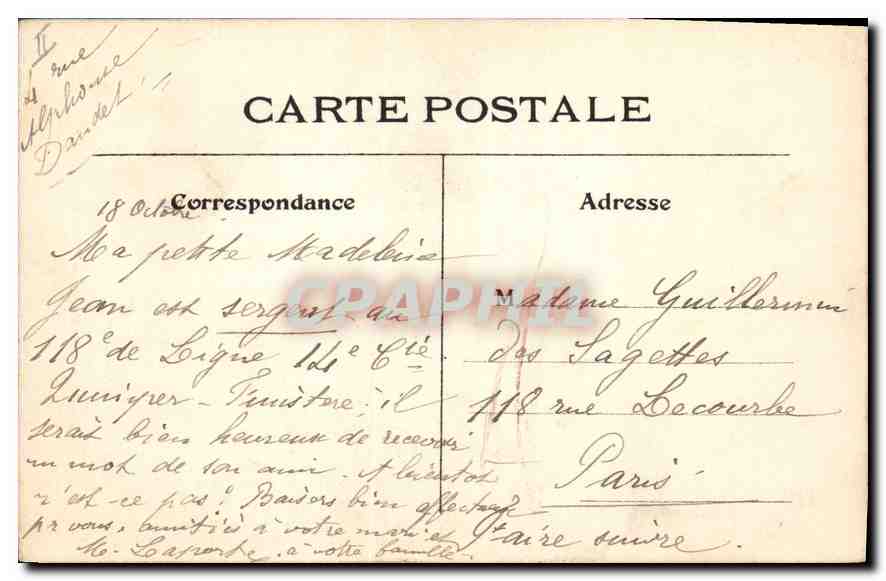 II
4 rue
Alphonse
Daudet
CARTE POSTALE
Correspondance
18 Octobre
Ma petite Madeleine
Jean est sergent au
118e de Ligne 14e Cie
Quimper - Finistere; il
serait bien heureux de recevoir
un mot de son ami. A bientôt
n'est-ce pas? Baisers bien affectueux
pr vous, amitiés à votre mari et
M. Laporte, à votre famille.
Adresse
Madame Guillermin
des Sagettes
118 rue Lecourbe
Paris
faire suivre.
CPAPHIL